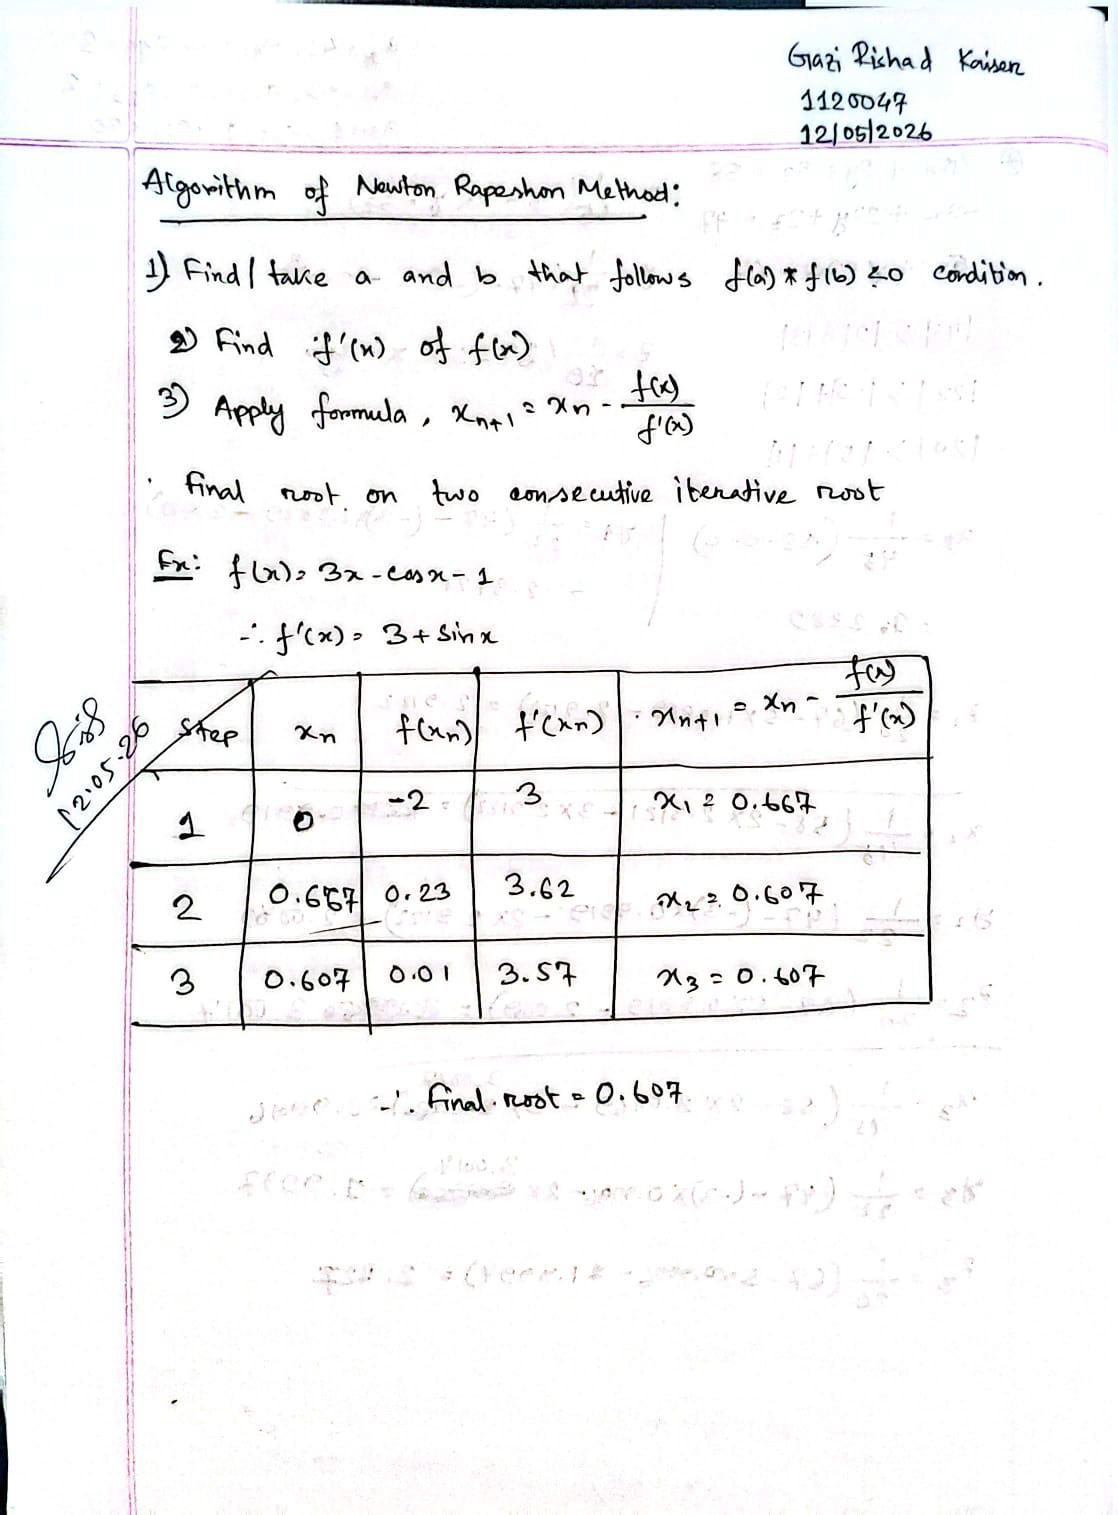 Gazi Rishad Kaiser
1120047
12/05/2026
Algorithm of Newton Rapeshon Method:
1) Find / take a and b that follows f(a) * f(b) ≤0 condition.
2) Find f'(x) of f(x)
3) Apply formula, xₙ₊₁ = xₙ - f(x)/f'(x)
Final root on two consecutive iterative root
Ex: f(x) = 3x - cosx - 1
∴ f'(x) = 3 + Sinx
Step xₙ f(xₙ) f'(xₙ) xₙ₊₁ = xₙ - f(x)/f'(x)
12.05.26
1 0 -2 3 x₁ = 0.667
2 0.667 0.23 3.62 x₂ = 0.607
3 0.607 0.01 3.57 x₃ = 0.607
∴ Final root = 0.607